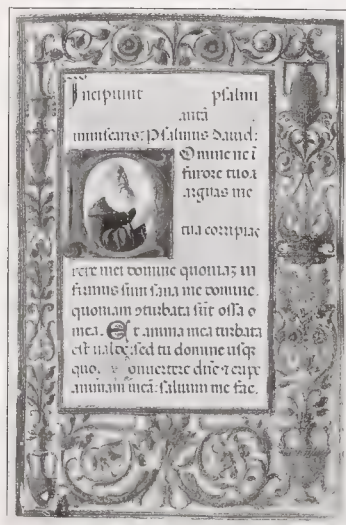 Incipiunt psalmi
Psalmus david:
Omine ne i
furore tuo a
arguas me
tua corripias
rere mei domine quoniaz in
firmus sum sana me domine.
quoniam oturbata sut ossa o
mea. Et anima mea turbata
est ualde: sed tu domine usq
quo. Conuertere dne & eripe
animam mea: saluum me fac.